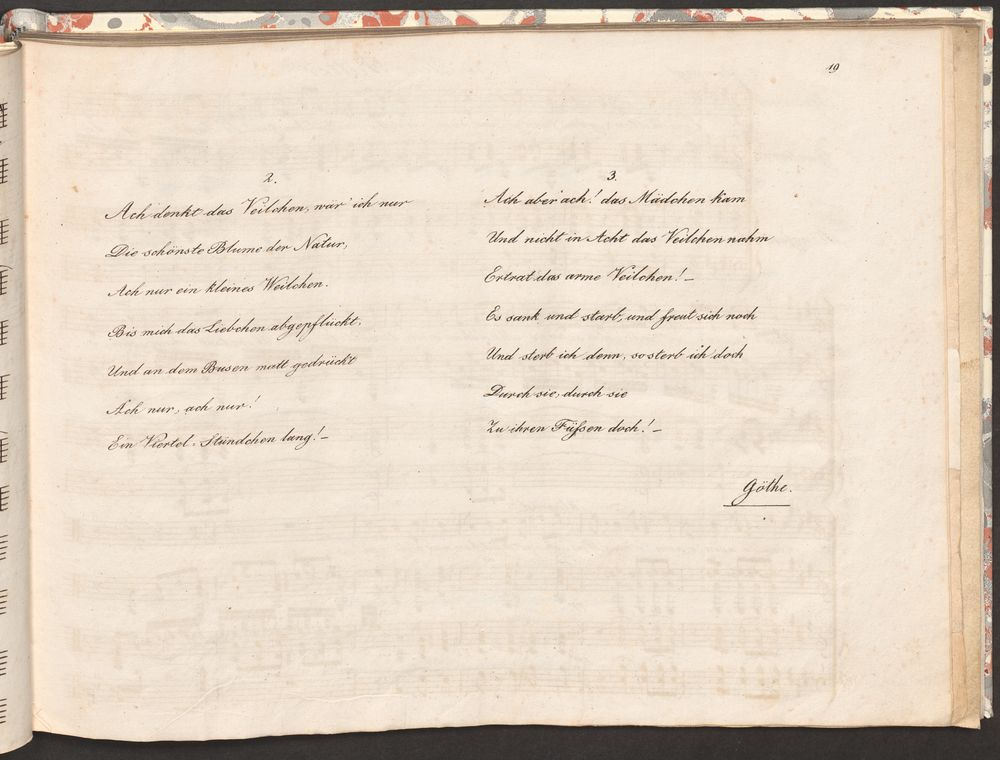 19
2.
Ach denkt das Veilchen, wär' ich nur
Die schönste Blume der Natur,
Ach nur ein kleines Weilchen.
Bis mich das Liebchen abgepflückt,
Und an dem Busen matt gedrückt
Ach nur, ach nur!
Ein Viertel-Stündchen lang! –
3.
Ach aber ach! das Mädchen kam
Und nicht in Acht das Veilchen nahm
Ertrat das arme Veilchen! –
Es sank und starb, und freut sich noch
Und sterb ich denn, so sterb ich doch
Durch sie, durch sie
Zu ihren Füßen doch! –
Göthe.